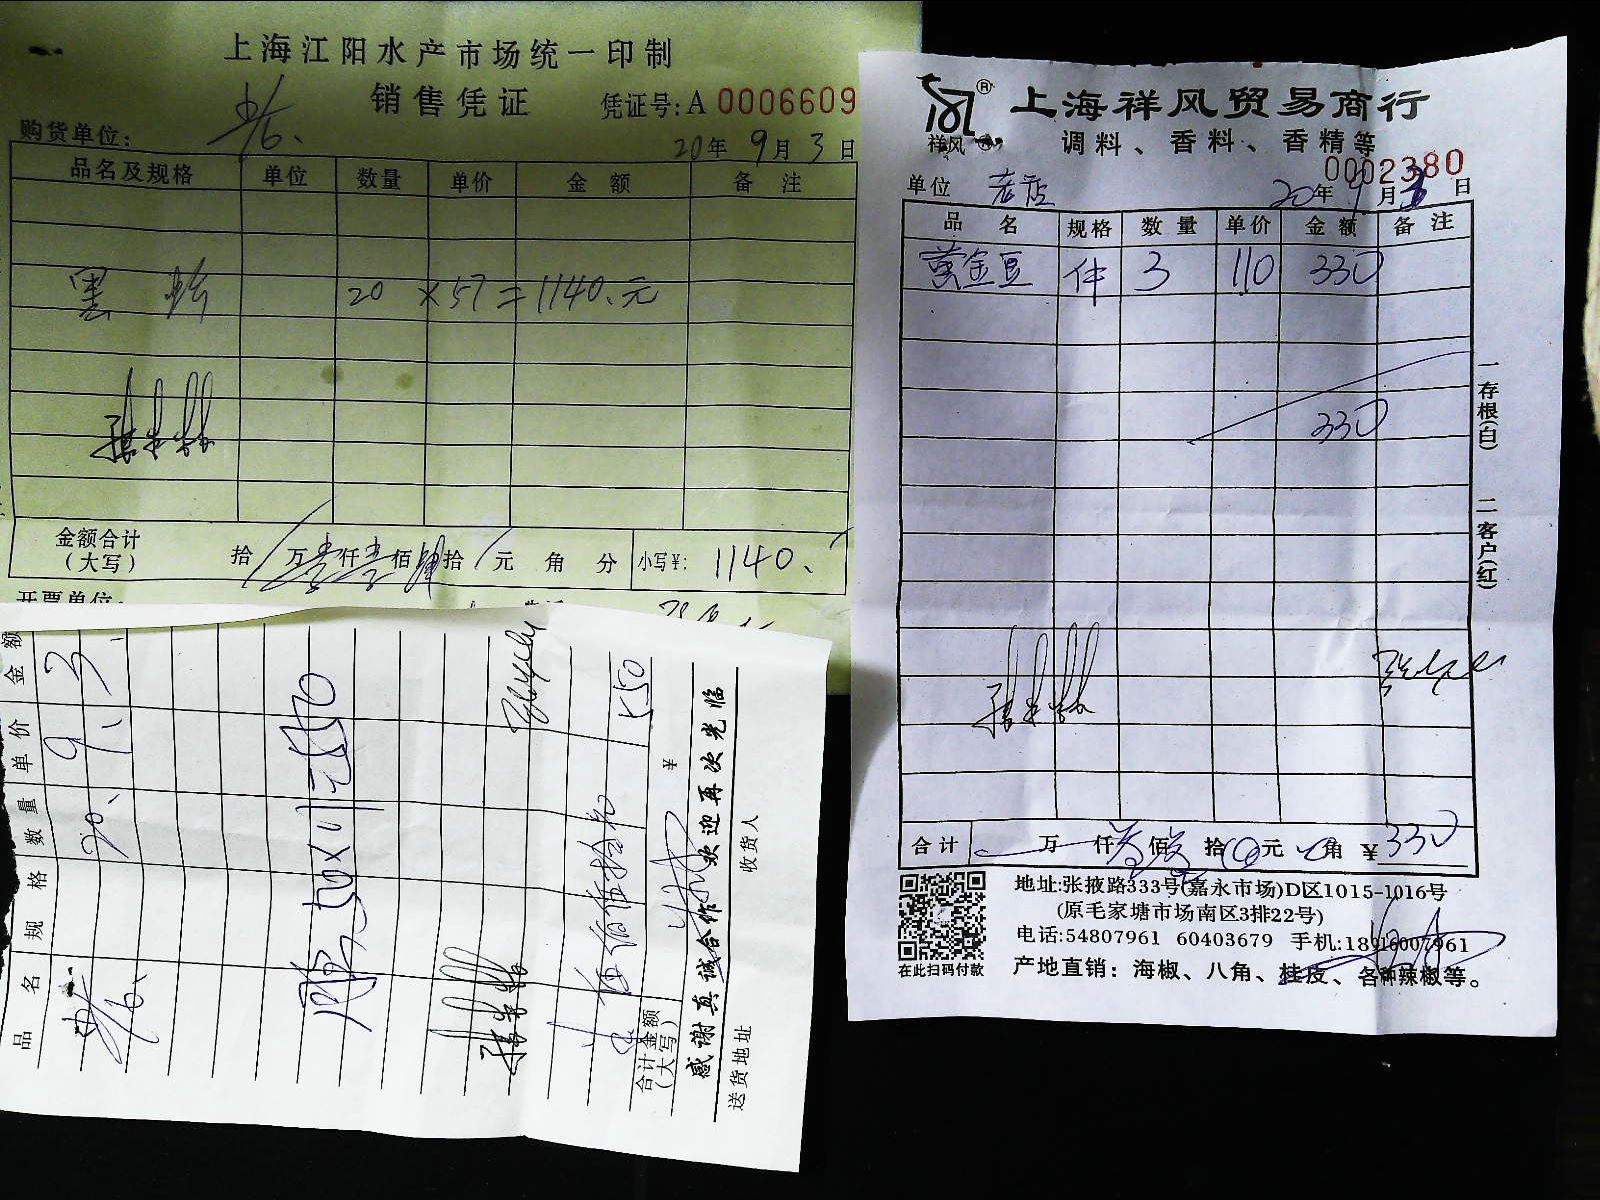 上海江阳水产市场统一印制
销售凭证 凭证号:A 0006609
购货单位:
20年 9月 3日
品名及规格 单位 数量 单价 金额 备注
黑 20 ×57=1140.元
金额合计(大写) 拾 万壹仟壹佰肆拾 元 角 分 小写¥: 1140.
开票单位:
品名 规格 数量 单价 金额
20. 9. 3
50×11=550
伍佰伍拾
合计金额(大写) ¥ 550
感谢真诚合作 欢迎再次光临
送货地址 收货人
祥风 ®
上海祥风贸易商行
调料、香料、香精等
0002380
单位 老店 20年 9月 3日
品名 规格 数量 单价 金额 备注
黄金豆 件 3 110 330
330
一存根(白) 二客户(红)
合计 万 仟叁佰叁拾0元0角 ¥330
在此扫码付款
地址:张掖路333号(嘉永市场)D区1015-1016号
(原毛家塘市场南区3排22号)
电话:54807961 60403679 手机:18916007961
产地直销:海椒、八角、桂皮、各种辣椒等。